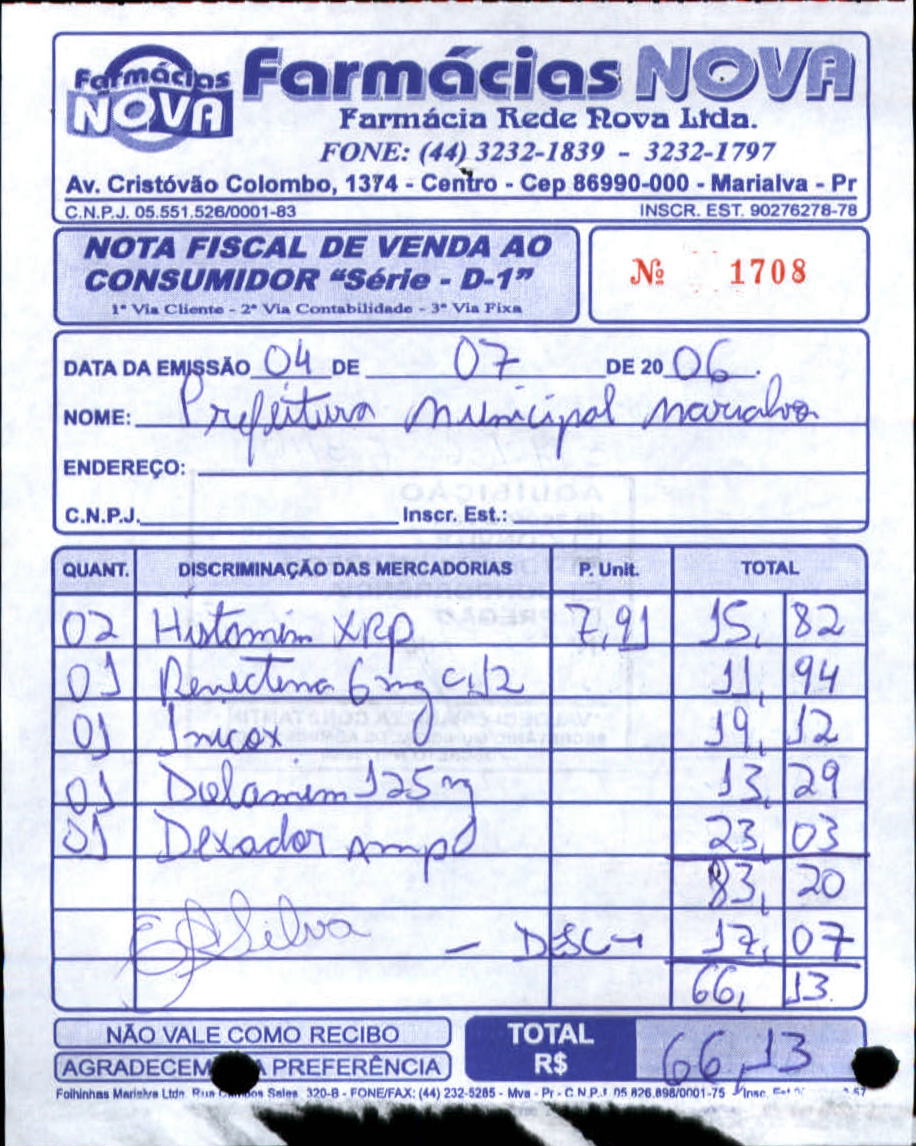 Farmácias NOVA
Farmácias NOVA
Farmácia Rede Nova Ltda.
FONE: (44) 3232-1839 - 3232-1797
Av. Cristóvão Colombo, 1374 - Centro - Cep 86990-000 - Marialva - Pr
C.N.P.J. 05.551.526/0001-83 INSCR. EST. 90276278-78
NOTA FISCAL DE VENDA AO
CONSUMIDOR "Série - D-1"
1ª Via Cliente - 2ª Via Contabilidade - 3ª Via Fixa
Nº 1708
DATA DA EMISSÃO 04 DE 07 DE 20 06.
NOME: Prefeitura Municipal Marialva
ENDEREÇO:
C.N.P.J. Inscr. Est.:
QUANT. DISCRIMINAÇÃO DAS MERCADORIAS P. Unit. TOTAL
02 Histamin XRP 7,91 15,82
01 Revectina 6mg c/12 11,94
01 19,12
01 125 13,29
01 Dexador amp 23,03
83,20
Silva - DESC 17,07
66,13
NÃO VALE COMO RECIBO
AGRADECEM A PREFERÊNCIA
TOTAL R$ 66,13
Folhinhas Marialva Ltda. Rua Sales, 320-B - FONE/FAX: (44) 232-5285 - Mva - Pr - C.N.P.J. 05.826.898/0001-75 - Insc.